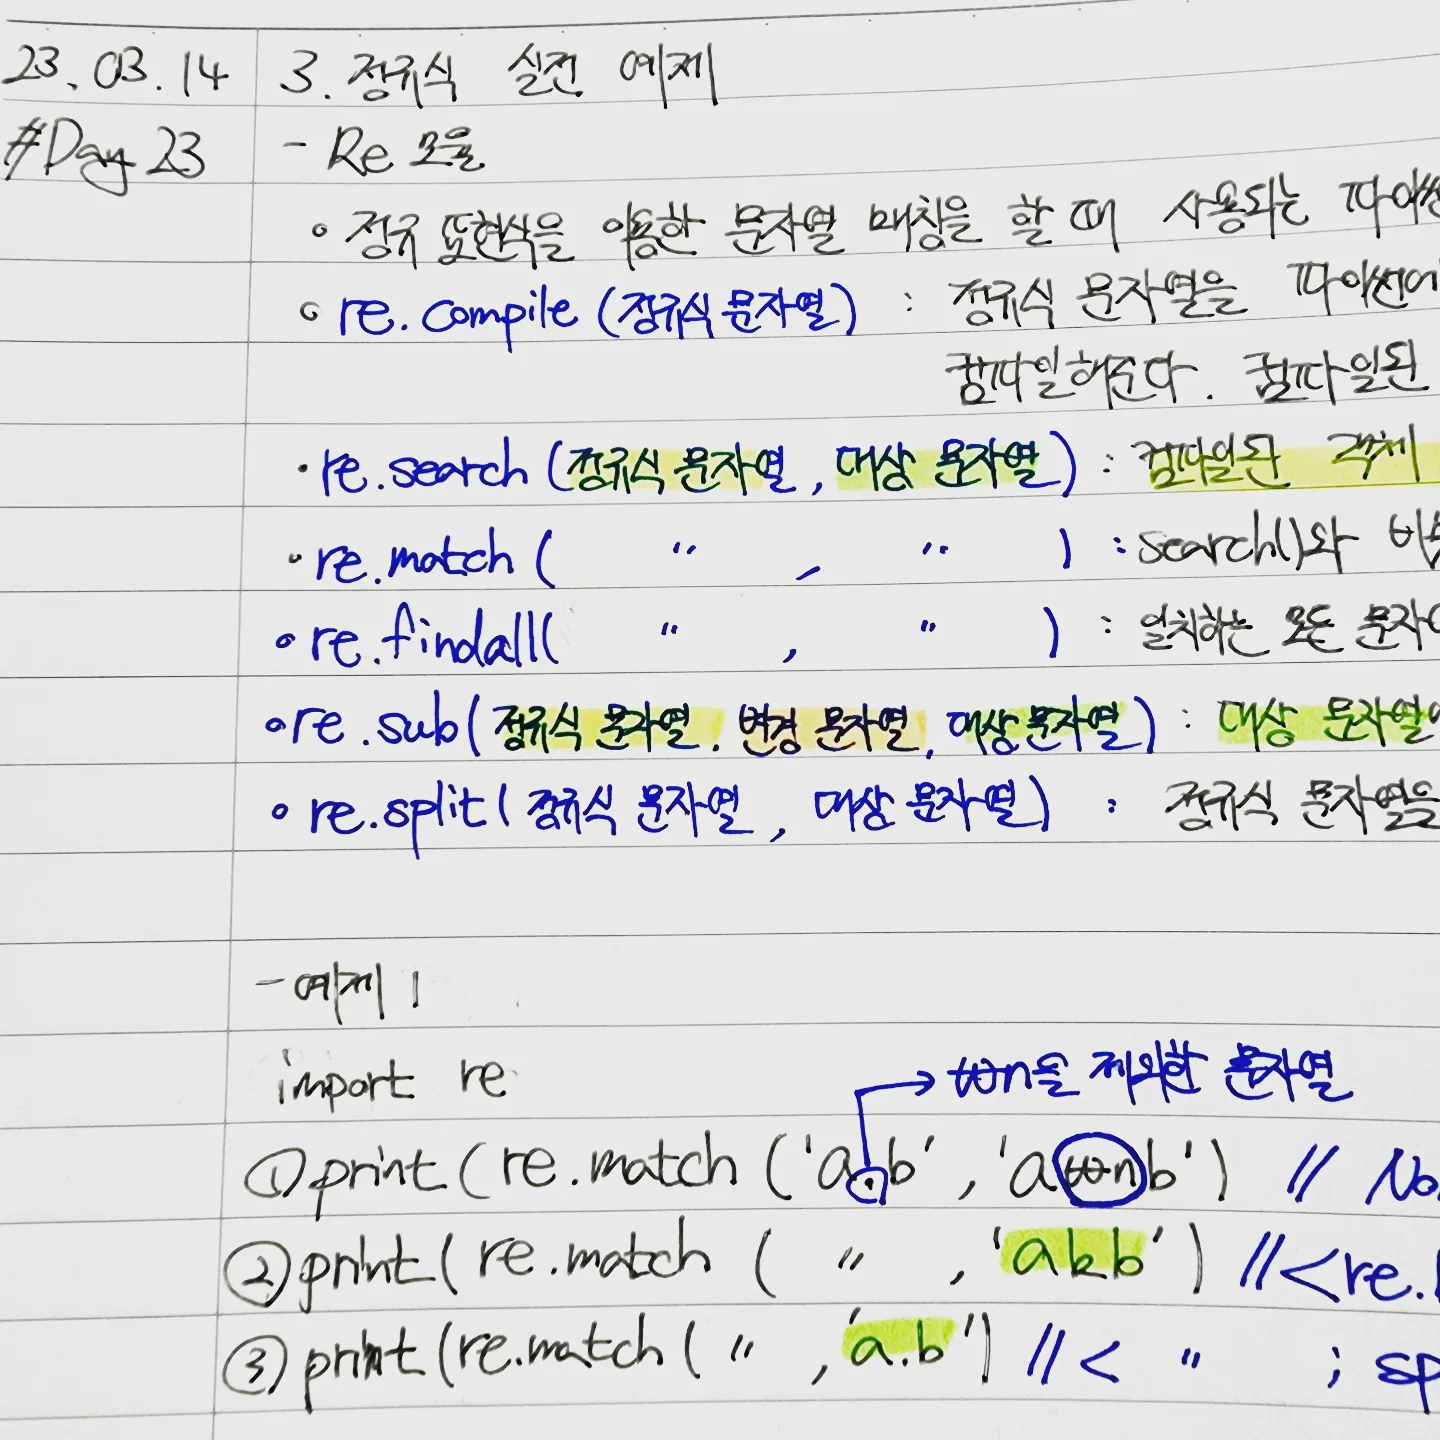 23.03.14 3. 정규식 실전 예제
#Day 23 - Re 모듈
◦ 정규 표현식을 이용한 문자열 매칭을 할 때 사용되는 파이썬
◦ re.compile (정규식 문자열) : 정규식 문자열을 파이썬에
컴파일해준다. 컴파일된
• re.search (정규식 문자열, 대상 문자열) : 컴파일된 객체
• re.match ( " , " ) : search()와 비
◦ re.findall( " , " ) : 일치하는 모든 문자
◦ re.sub(정규식 문자열, 변경 문자열, 대상 문자열) : 대상 문자열
◦ re.split( 정규식 문자열, 대상 문자열) : 정규식 문자열을
- 예제 1
import re
→ ₩n을 제외한 문자열
① print (re.match ('a.b', 'a₩nb') // No
② print( re.match ( " , 'akb') //<re.
③ print (re.match ( " , 'a.b') // < " ; sp